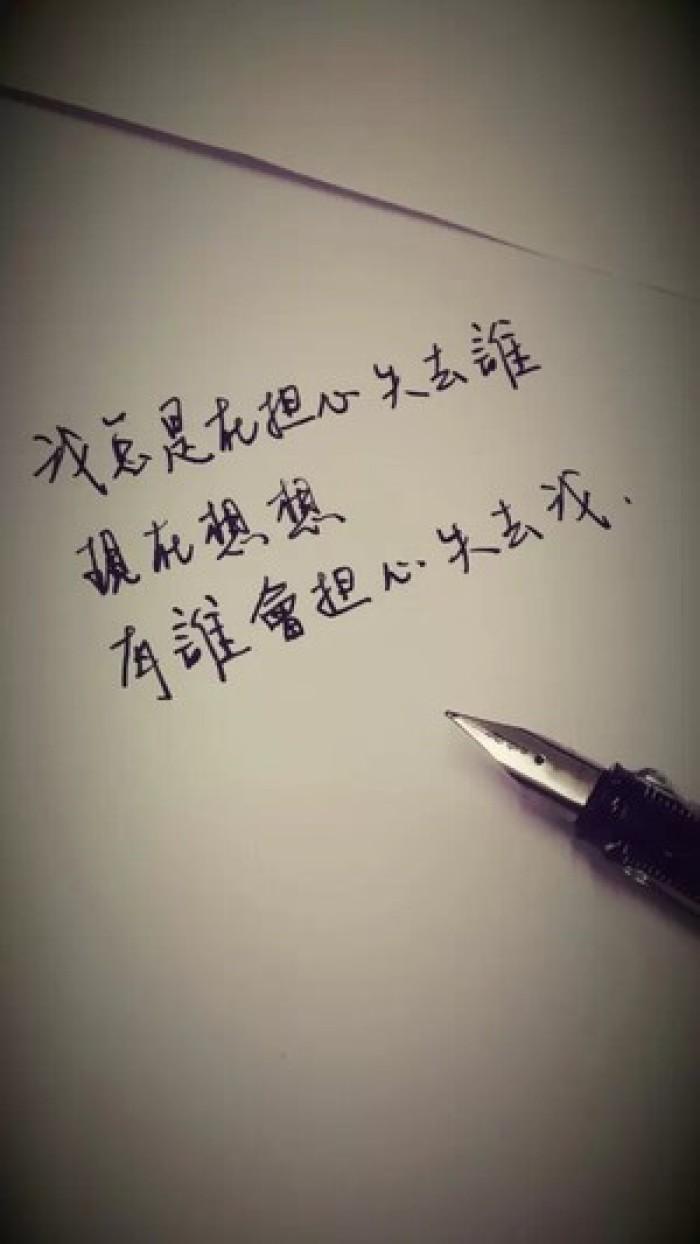 我总是在担心失去誰
現在想想
有誰會担心失去我.